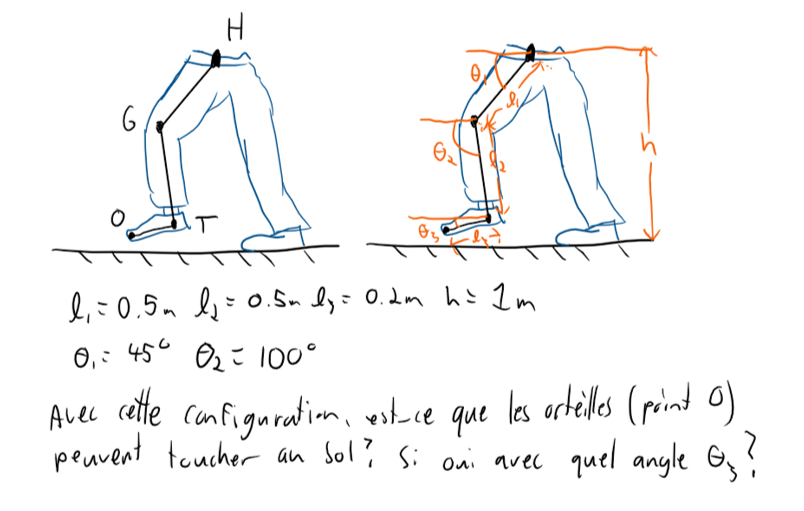 H
G
O
T
θ₁
l₁
θ₂
l₂
θ₃
l₃
h
l₁ = 0.5m l₂ = 0.5m l₃ = 0.2m h = 1m
θ₁ = 45° θ₂ = 100°
Avec cette configuration, est-ce que les orteilles (point O)
peuvent toucher au sol? Si oui avec quel angle θ₃?